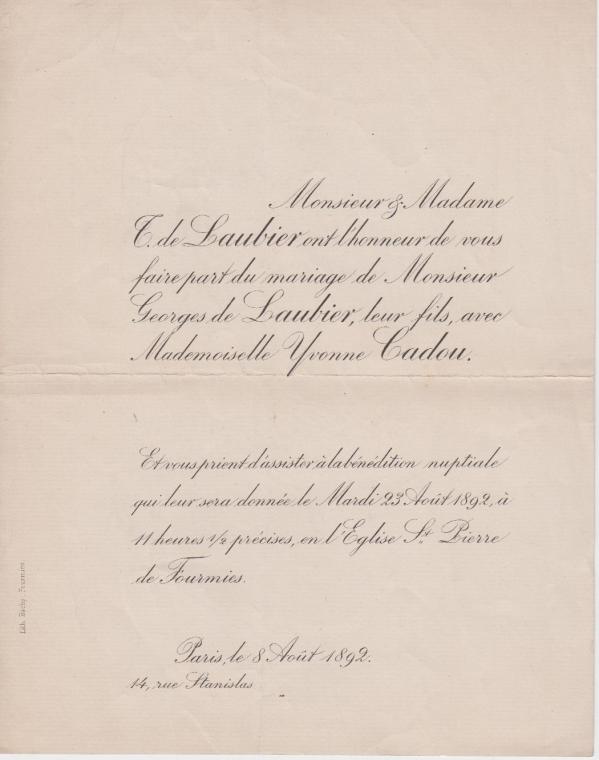 Monsieur & Madame
T. de Laubier ont l'honneur de vous
faire part du mariage de Monsieur
Georges de Laubier, leur fils, avec
Mademoiselle Yvonne Cadou.
Et vous prient d'assister à la bénédition nuptiale
qui leur sera donnée le Mardi 23 Août 1892, à
11 heures 1/2 précises, en l'Eglise St. Pierre
de Fourmies.
Paris, le 8 Août 1892.
14, rue Stanislas
Lith. Bachy. Fourmies